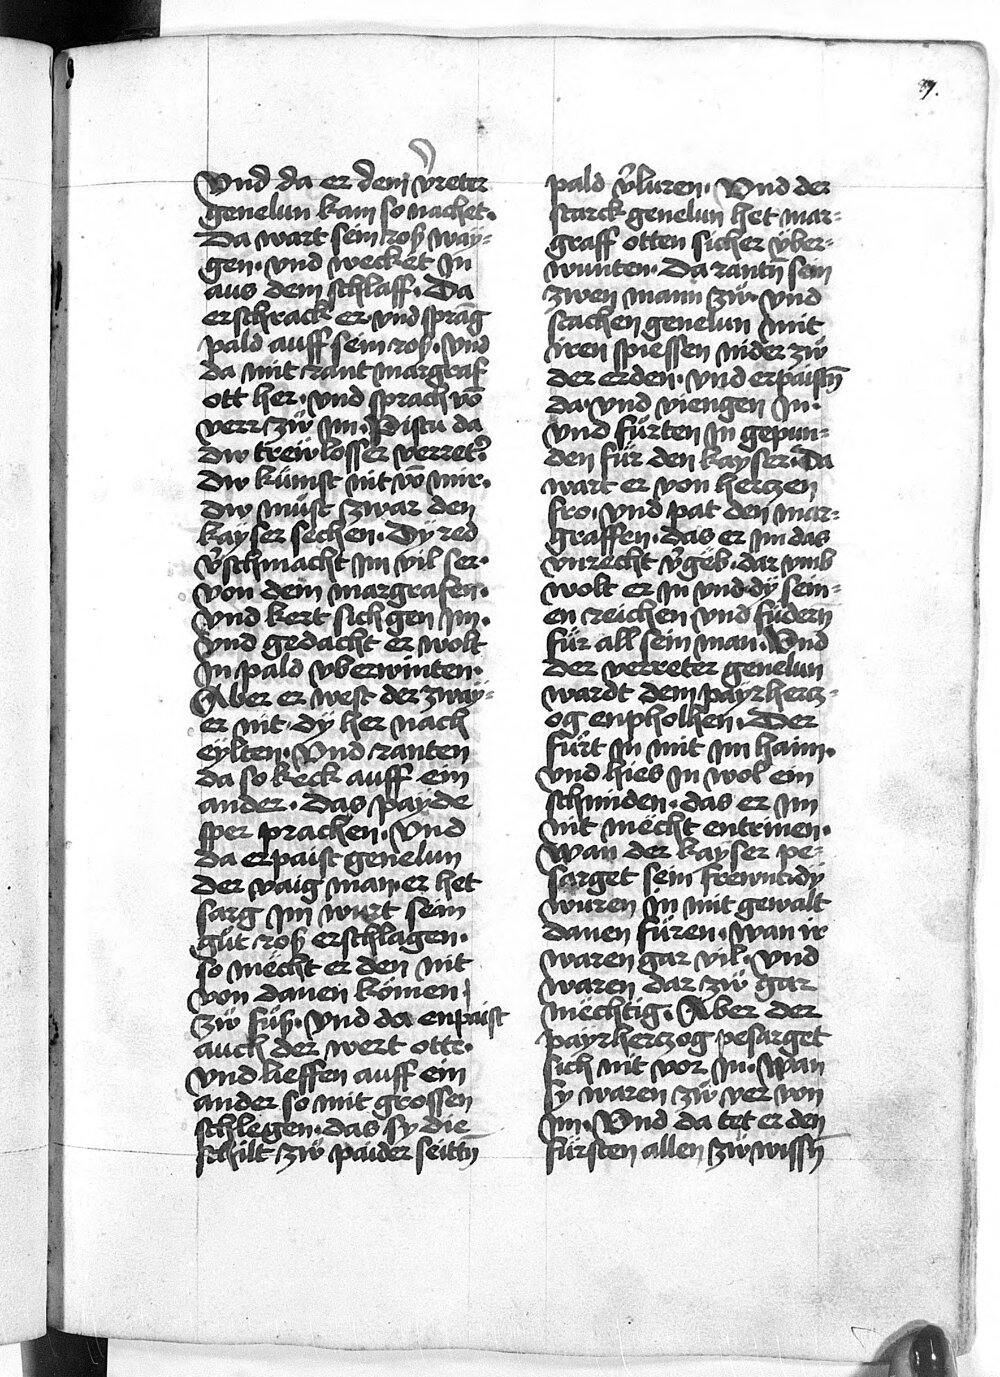 87.
Vnd da er dem v̄reter
genelun kam so nachet.
Da wart sein roß way-
gen. vnd wecket in
aus dem schlaff. Da
erschrack er. vnd sprāg
pald auff sein roß. vnd
da mit rant margraf
ott her. vnd sprach vō
verr zẅ im. Pistu da
dw trewlosser verret᷑.
dw kümst nit vō mir.
dw müst zwar den
kayser sechen. Dÿ red
v̄schmacht im vil ser.
von dem margrafen.
vnd kert sich gen im.
vnd gedacht er wolt
in pald vberwinten.
Aber er west der zway-
er nit. dÿ her nach
eÿlten. Vnd ranten
da so keck auff ein
ander. das payde
sper prachen. Vnd
da erpaist genelun
der vaig man. er het
sarg im wurt sein
güt roß erschlagen.
so mëcht er den nit
von danen kömen
zẅ füß. vnd da enpaist
auch der wert otte.
vnd lieffen auff ein
ander so mit grossen
schlegen. das sy die
schilt zẅ paider seittñ
pald v̄luren. Vnd der
starck genelun het mar-
graff otten sicher ÿber-
wunten. Da rantñ sein
zwen mann zẅ. vnd
stachen genelun mit
iren spiessen nider zẅ
der erden. vnd erpaistñ
da. vnd viengen in.
vnd fürten in gepun-
den für den kayser. Da
wart er von herczen
fro. vnd pat den mar-
graffen. das er im das
vnrecht v̄geb. dar vmb
wolt er in vnd dÿ sein-
en reichen vnd füdern
für all sein man. Vnd
der verreter genelun
wardt dem payrhercz-
og enpholhen. Der
fürt in mit im haim.
vnd hies in wol ein
schmiden. das er im
nit mëcht entrinen.
Wan der kayser pe-
sarget sein frewnt. dÿ
wuren in mit gewalt
danen füren. wan ir
waren gar vil. vnd
waren dar zẅ gar
mëchtig. Aber der
payrherczog pesarget
sich nit vor in. Wan
sy waren zẅ ver von
im. Vnd da tet er den
fürsten allen zẅ wissñ